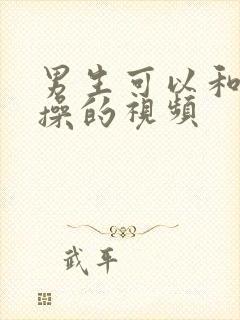 男生可以和
操的視頻
武平